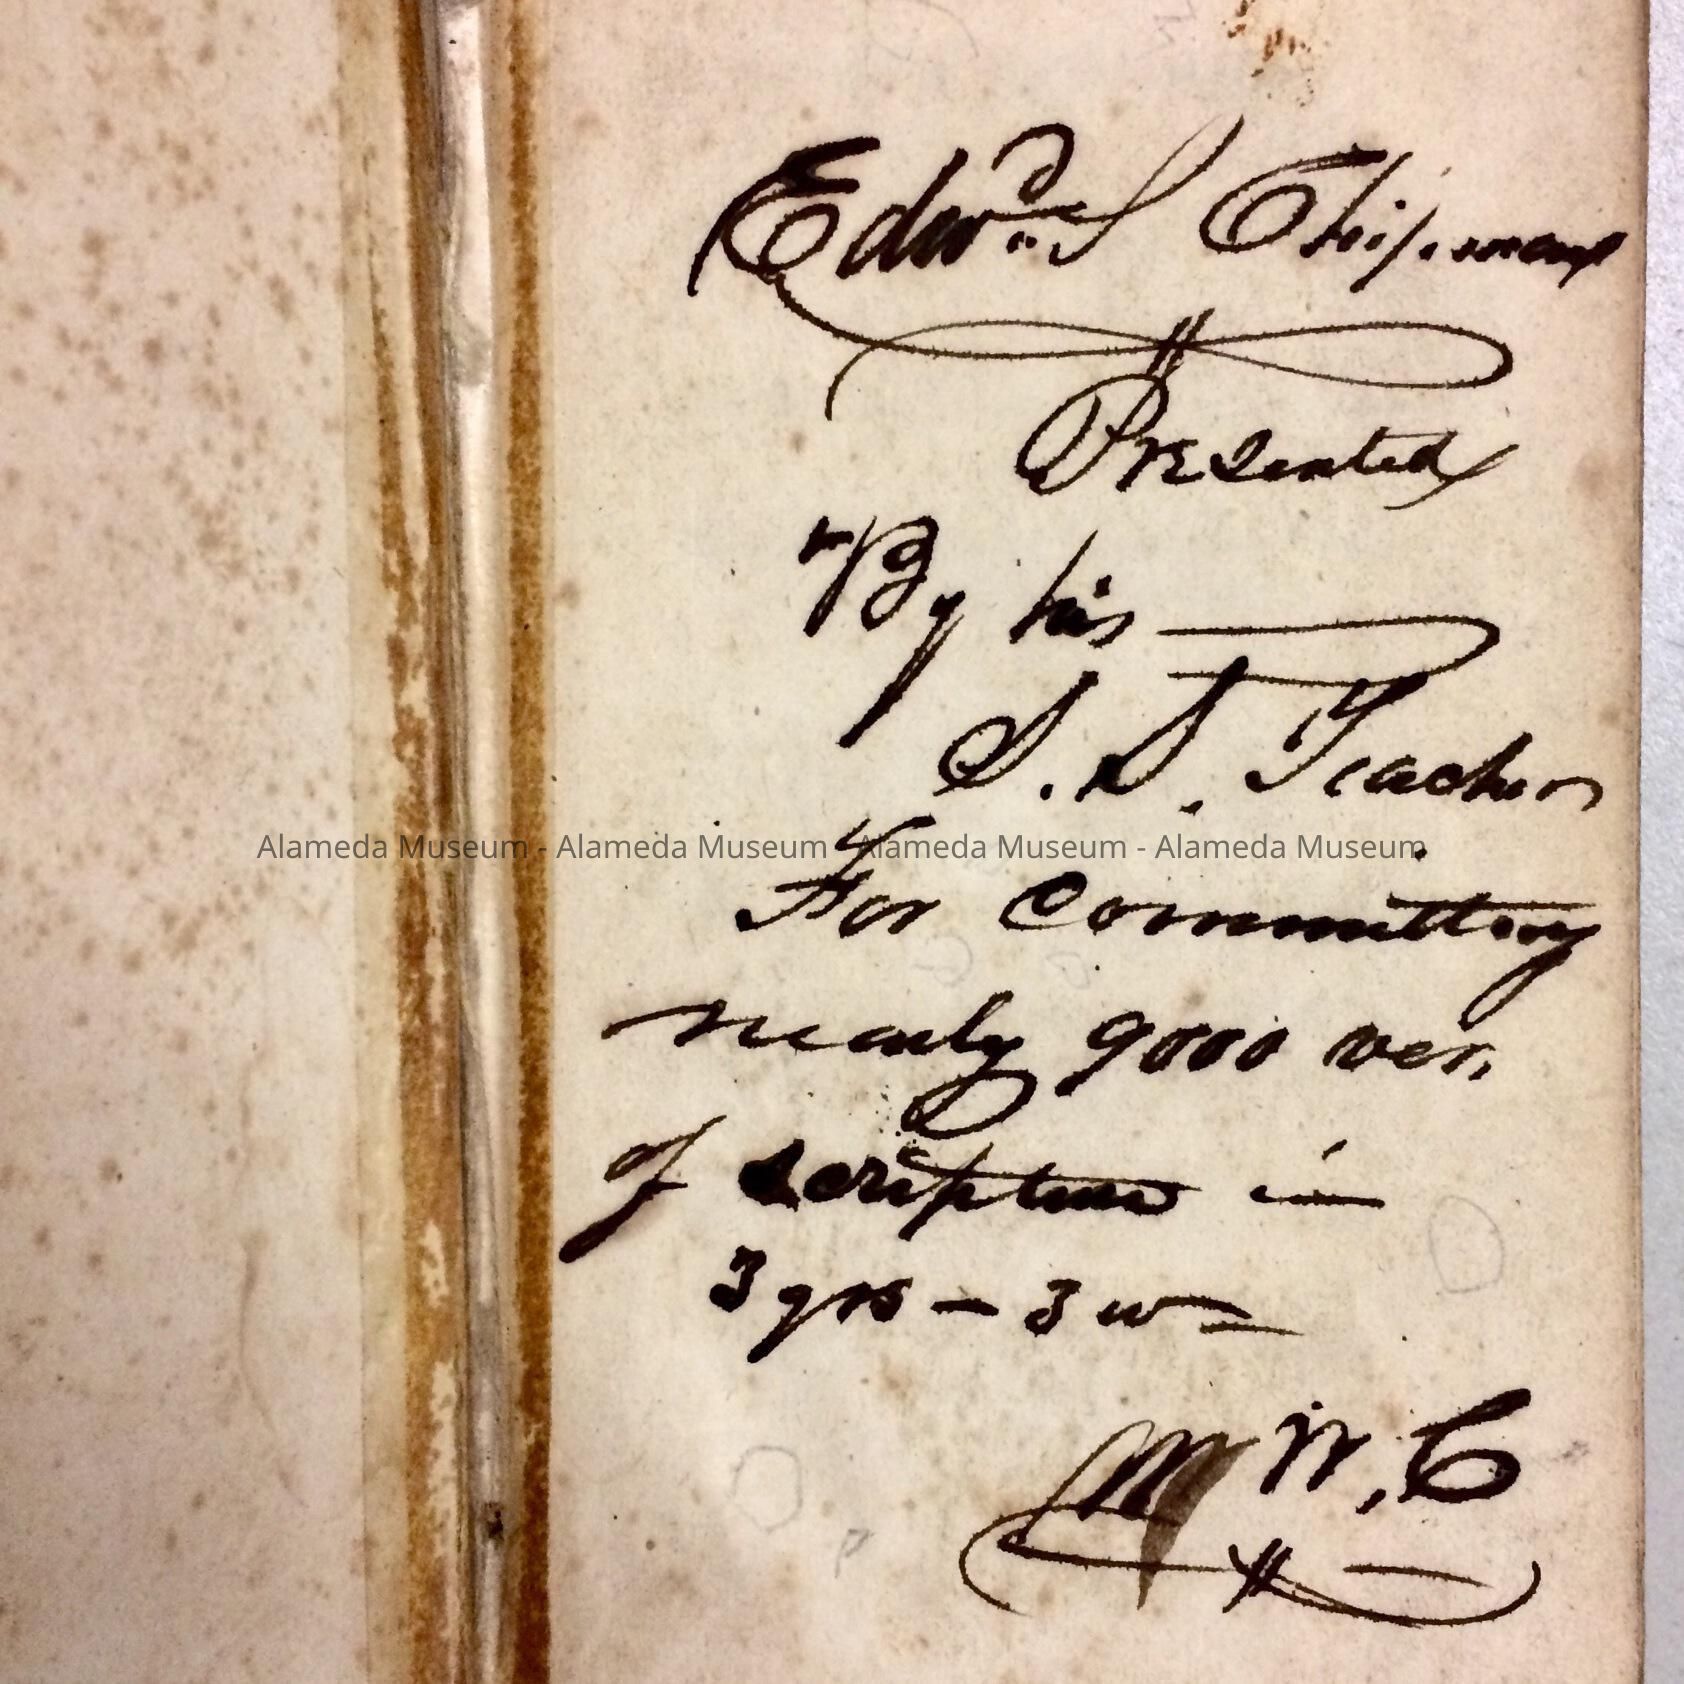 Edwd. S Chipman
Presented
By his
S. S. Teacher
Alameda Museum - Alameda Museum - Alameda Museum - Alameda Museum
For Committing
nearly 9000 ver,
of scripture in
3 yrs - 3 w
M W. C